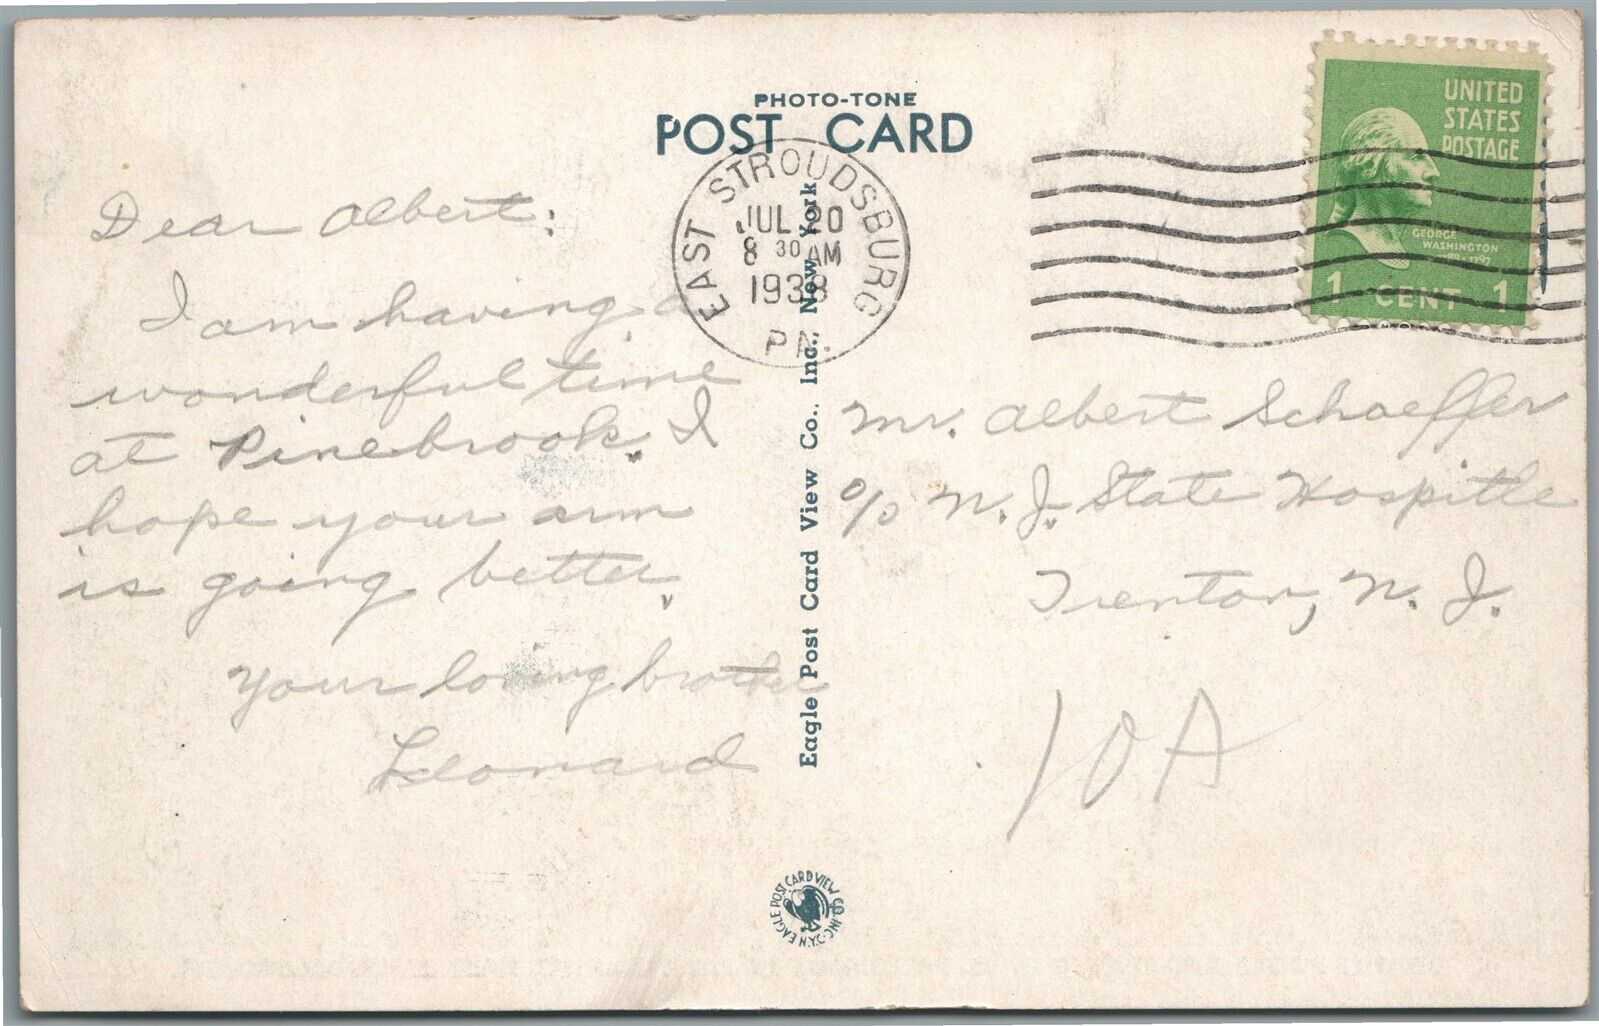 PHOTO-TONE
POST CARD
UNITED
STATES
POSTAGE
GEORGE
WASHINGTON
1 CENT 1
EAST STROUDSBURG
JUL 20
8 30 AM
1938
PA.
Dear Albert:
I am having a
wonderful time
at Pinebrook. I
hope your arm
is going better.
Your loving brother
Leonard
Eagle Post Card View Co., Inc., New York
Mr. Albert Schaeffer
c/o N. J. State Hospitle
Trenton, N. J.
10A
EAGLE POST CARD VIEW CO. INC. N.Y.C.